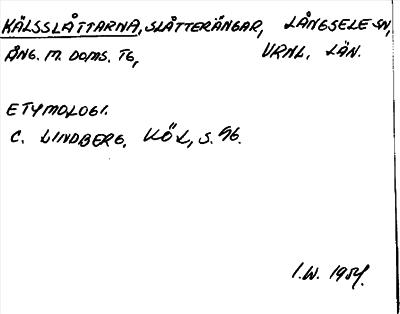 KÄLSSLÅTTARNA, SLÅTTERÄNGAR, LÅNGSELE SN,
ÅNG. M. DOMS. TG, VRNL. LÄN.
ETYMOLOGI.
C. LINDBERG, KÖL, S. 96.
I.W. 1954.